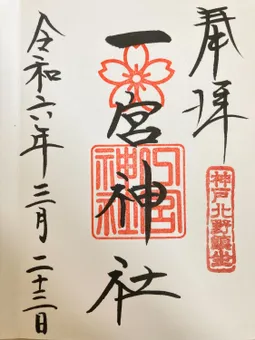 奉拝
神戸北野鎮座
一宮神社
一宮神社
令和六年三月二十三日